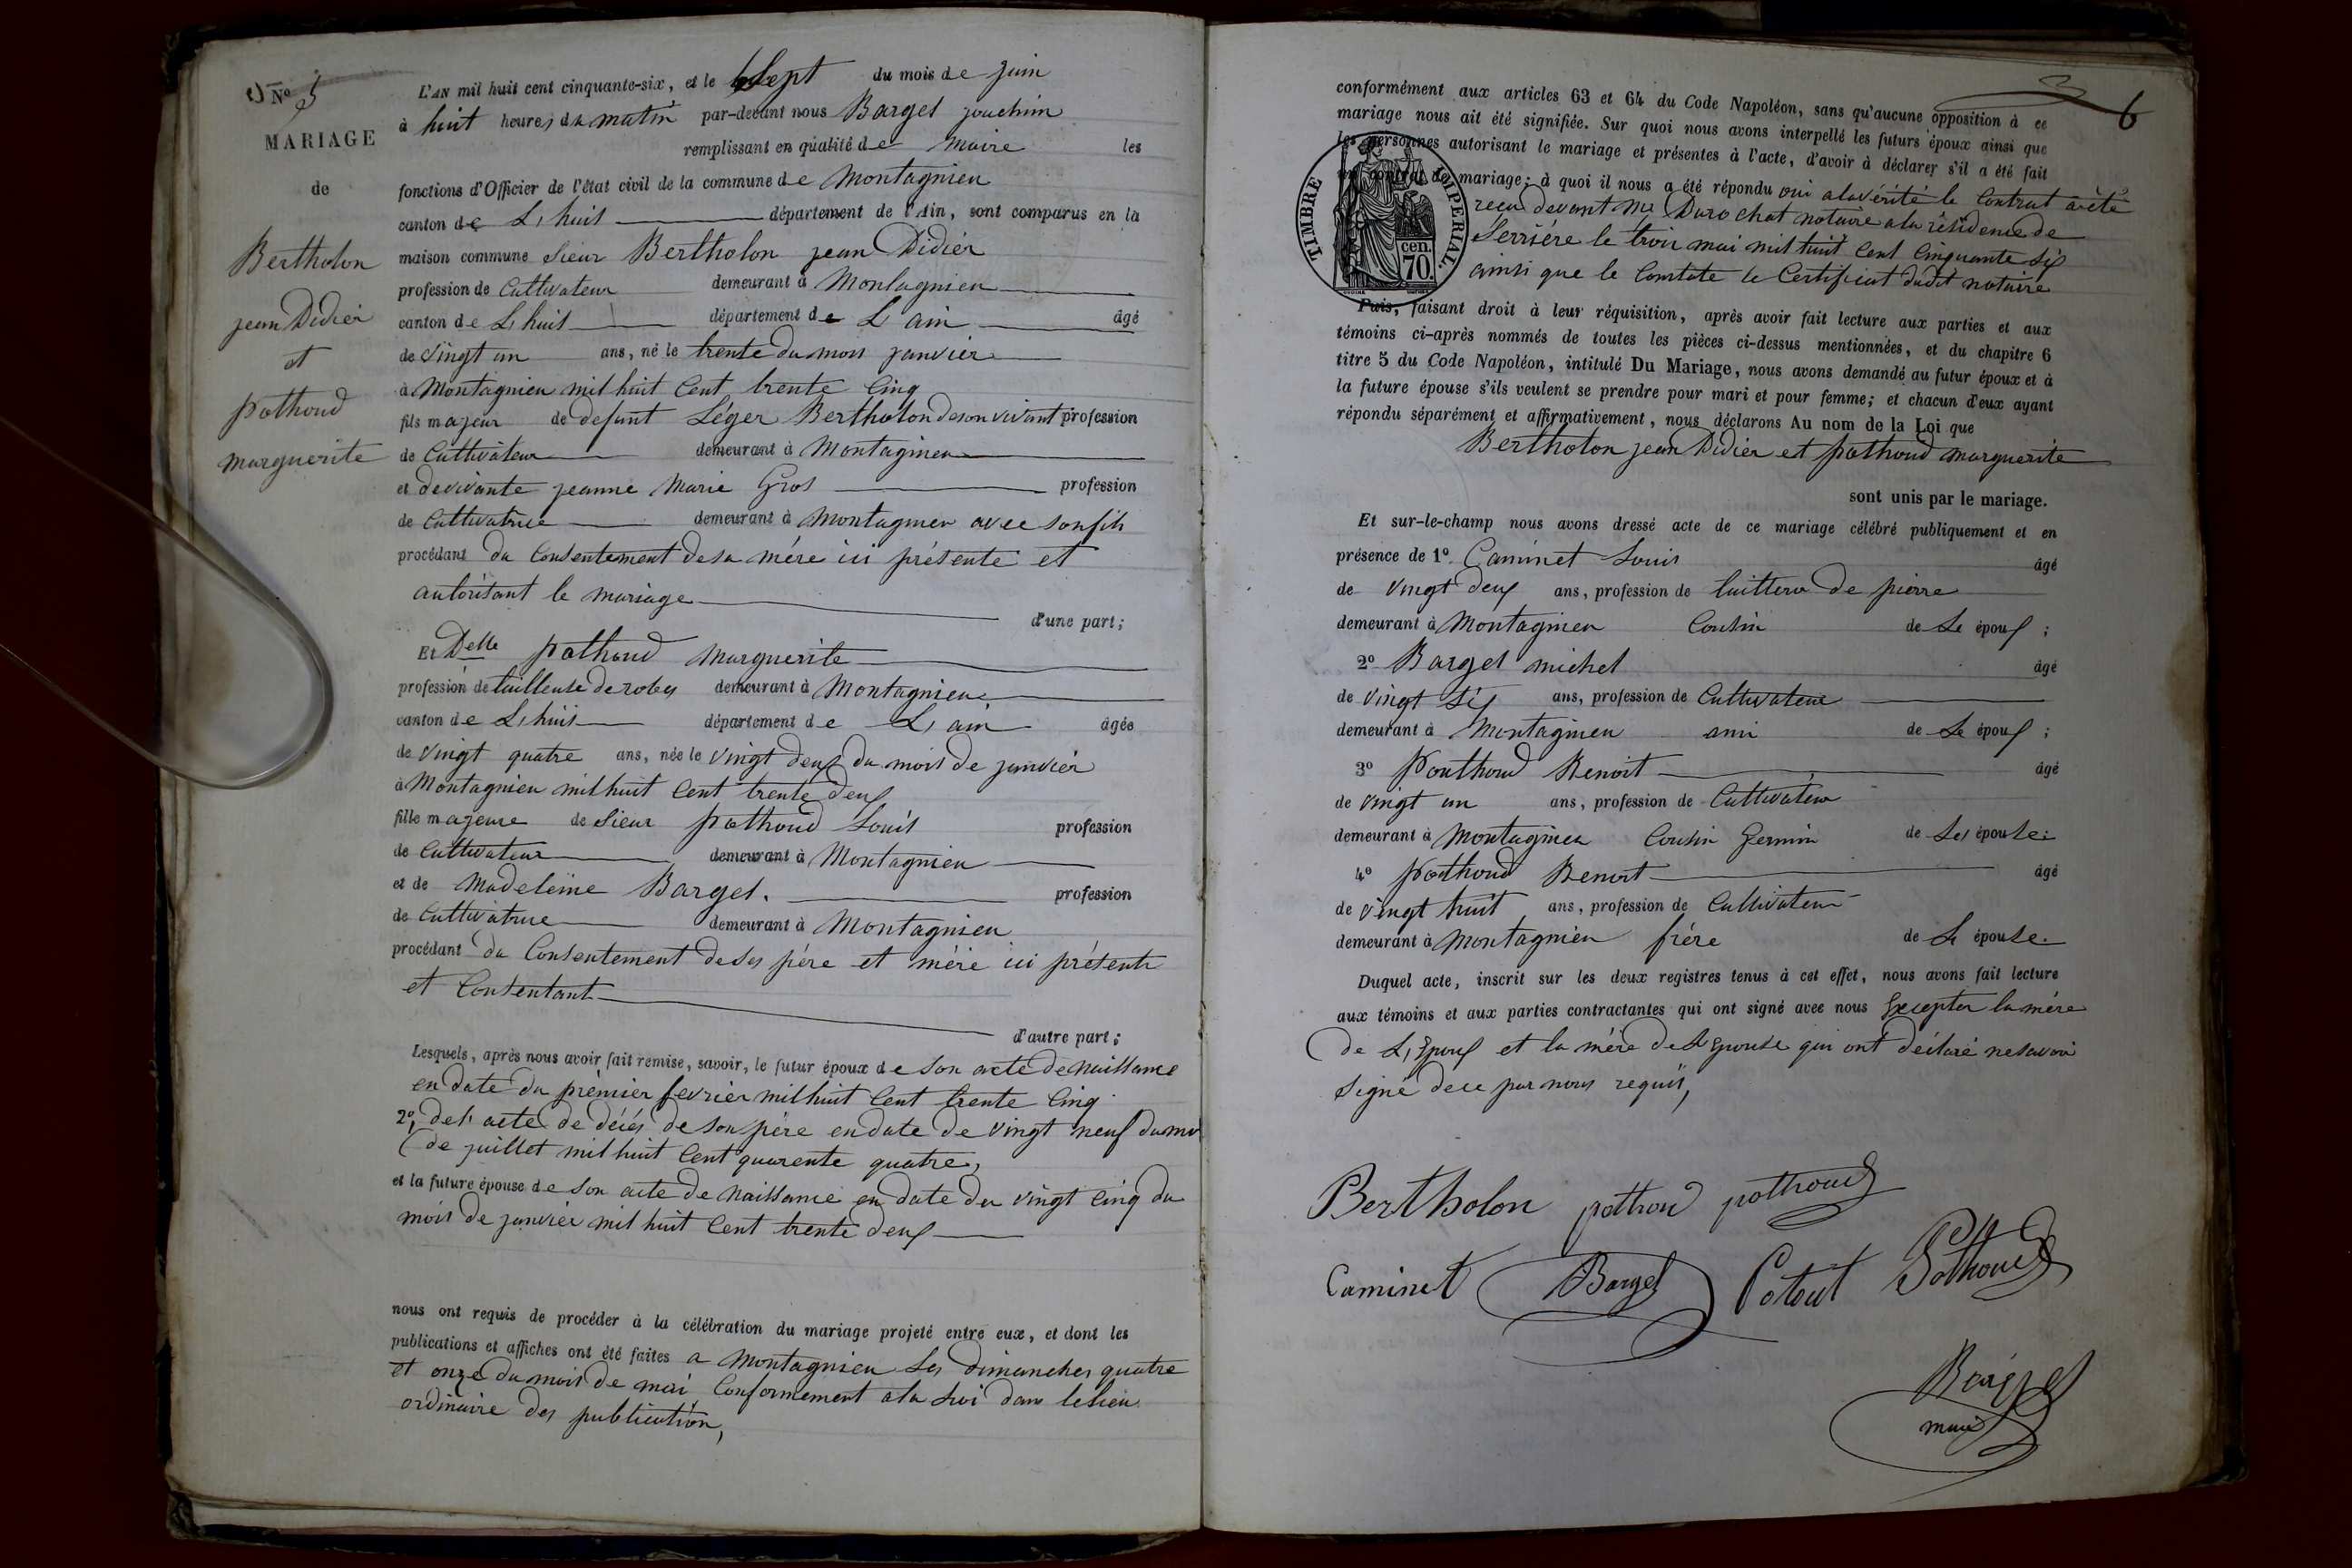 No 5
MARIAGE
de
Bertholon
jean Didier
et
pothoud
marguerite
L'AN mil huit cent cinquante-six, et le Sept du mois de juin
à huit heures du matin par-devant nous Barget jouchim
remplissant en qualité de Maire les
fonctions d'Officier de l'état civil de la commune de Montagnieu
canton de L,huis département de l'Ain, sont comparus en la
maison commune sieur Bertholon jean Didier
profession de Cultivateur demeurant à Montagnieu
canton de L,huis département de L'ain âgé
de vingt un ans, né le trente du mois janvier
à Montagnieu mil huit Cent trente Cinq
fils majeur de defunt Léger Bertholon de son vivant profession
de Cultivateur demeurant à Montagnieu
et de vivante jeanne Marie Gros profession
de Cultivatrice demeurant à Montagnieu avec son fils
procédant du Consentement de sa mére ici présente et
autorisant le mariage
d'une part;
Et Delle pothoud Marguerite
profession de tailleuse de robes demeurant à Montagnieu
canton de L,huis département de L,ain âgée
de vingt quatre ans, née le vingt deux du mois de janvier
à Montagnieu mil huit Cent trente deux
fille majeure de Sieur pothoud Louis profession
de Cultivateur demeurant à Montagnieu
et de Madeleine Barget. profession
de Cultivatrice demeurant à Montagnieu
procédant du Consentement de ses pére et mére ici présents
et Consentant
d'autre part;
Lesquels, après nous avoir fait remise, savoir, le futur époux de son acte de Naissance
en date du premier fevrier mil huit Cent trente Cinq
2o, de l'acte de décés de son pére en date de vingt neuf du moi
de juillet mil huit Cent quarente quatre,
et la future épouse de son acte de Naissance en date du vingt Cinq du
mois de janvier mil huit Cent trente deux
nous ont requis de procéder à la célébration du mariage projeté entre eux, et dont les
publications et affiches ont été faites a Montagnieu Les Dimanches quatre
et onze du mois de mai Conformement a la Loi dans le lieu
ordinaire des publication,
6
conformément aux articles 63 et 64 du Code Napoléon, sans qu'aucune opposition à ce
mariage nous ait été signifiée. Sur quoi nous avons interpellé les futurs époux ainsi que
les personnes autorisant le mariage et présentes à l'acte, d'avoir à déclarer s'il a été fait
un contrat de mariage; à quoi il nous a été répondu oui a la vérité le Contrat a été
recu devant Me Durochat notaire a la résidence de
Serriére le trois mai mil huit Cent Cinquante six
ainsi que le Constate le Certificat dudit notaire
TIMBRE IMPERIAL.
cen.
70.
Puis, faisant droit à leur réquisition, après avoir fait lecture aux parties et aux
témoins ci-après nommés de toutes les pièces ci-dessus mentionnées, et du chapitre 6
titre 5 du Code Napoléon, intitulé Du Mariage, nous avons demandé au futur époux et à
la future épouse s'ils veulent se prendre pour mari et pour femme; et chacun d'eux ayant
répondu séparément et affirmativement, nous déclarons Au nom de la Loi que
Bertholon jean Didier et pothoud marguerite
sont unis par le mariage.
Et sur-le-champ nous avons dressé acte de ce mariage célébré publiquement et en
présence de 1o Caminet Louis âgé
de vingt deux ans, profession de de pierre
demeurant à Montagnieu Cousin de Le époux ;
2o Barget michel âgé
de vingt six ans, profession de Cultivateur
demeurant à Montagnieu ami de Le époux ;
3o Pouthoud Benoit âgé
de vingt un ans, profession de Cultivateur
demeurant à Montagnieu Cousin Germin de Les épouse;
4o Pothoud Benoit âgé
de vingt huit ans, profession de Cultivateur
demeurant à Montagnieu frére de L épouse.
Duquel acte, inscrit sur les deux registres tenus à cet effet, nous avons fait lecture
aux témoins et aux parties contractantes qui ont signé avec nous Excepter la mére
de L,Epoux et la mére de L'Epouse qui ont déclaré ne savoir
signé de ce par nous requis,
Bertholon pothoud pothoud
Caminet Barget Potout Pothoud
Barget
maire